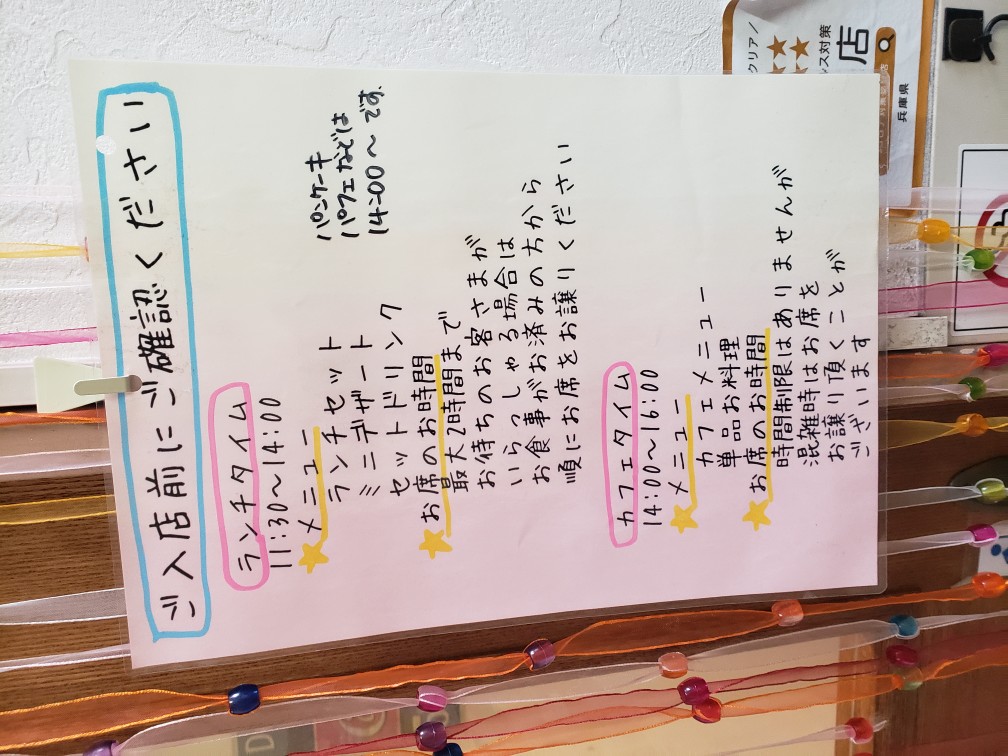 ご入店前にご確認ください
ランチタイム
11:30～14:00
パンケーキ
パフェなどは
14:00～です。
メニュー
ランチセット
ミニデザート
セットドリンク
お席のお時間
最大2時間まで
お待ちのお客さまが
いらっしゃる場合は
お食事がお済みの方から
順にお席をお譲りください
カフェタイム
14:00～16:00
メニュー
カフェメニュー
単品お料理
お席のお時間
時間制限はありませんが
混雑時はお席を
お譲り頂くことが
ございます
クリア
ス対策
店
兵庫県